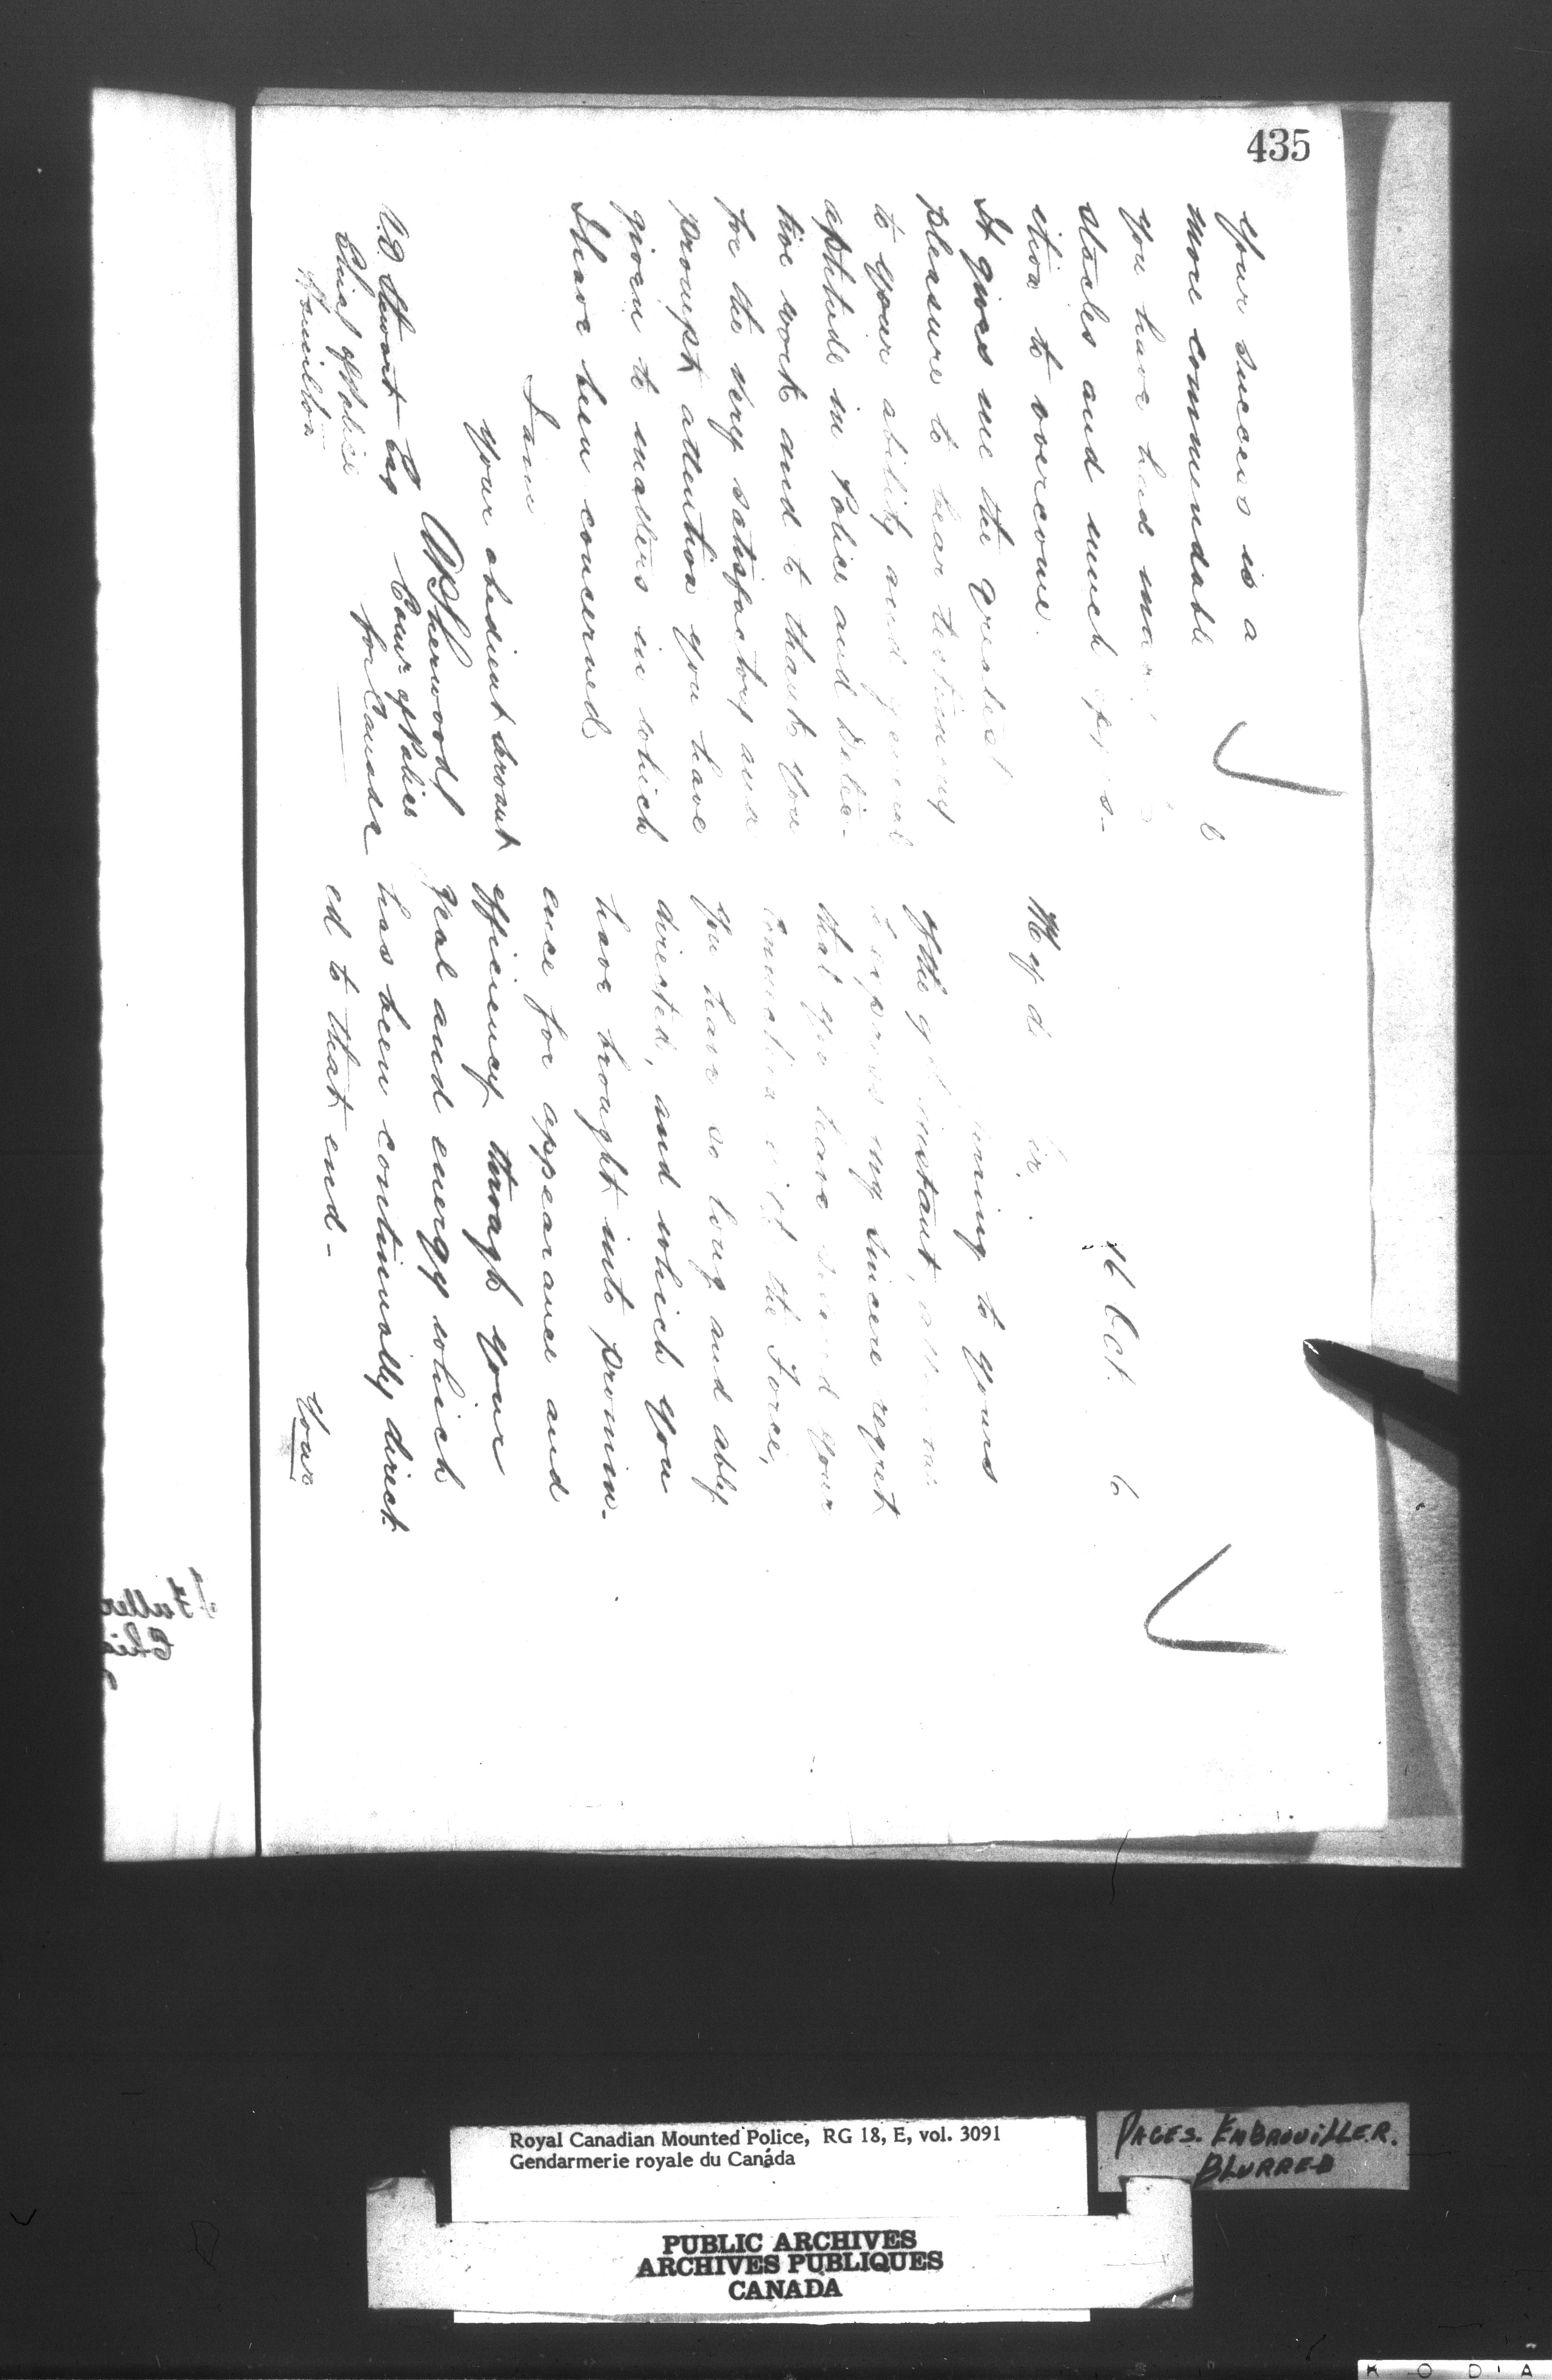 435
16 Oct. 6
My d
ning to yours
of the instant,
express my sincere regret
that you have your
connection the Force,
you have so long and ably
directed, and which you
have brought into promin-
ence for appearance and
efficiency through your
zeal and energy which
has been continually direct-
ed to that end -
Your
Your success is a
more commendable
you have had
stacles and much
ition to overcome.
It gives me the greatest
pleasure to bear testimony
to your ability and general
aptitude in Police and Detec-
tive work and to thank you
for the very satisfactory and
prompt attention you have
given to matters in which
I have been concerned
I am
your obedient servant
AP Sherwood
Comr. of Police
for Canada
Stewart Esq
Chief of Police
Hamilton
Royal Canadian Mounted Police, RG 18, E, vol. 3091
Gendarmerie royale du Canada
PAGES. EMBROUILLER.
BLURRED
PUBLIC ARCHIVES
ARCHIVES PUBLIQUES
CANADA
K O D A